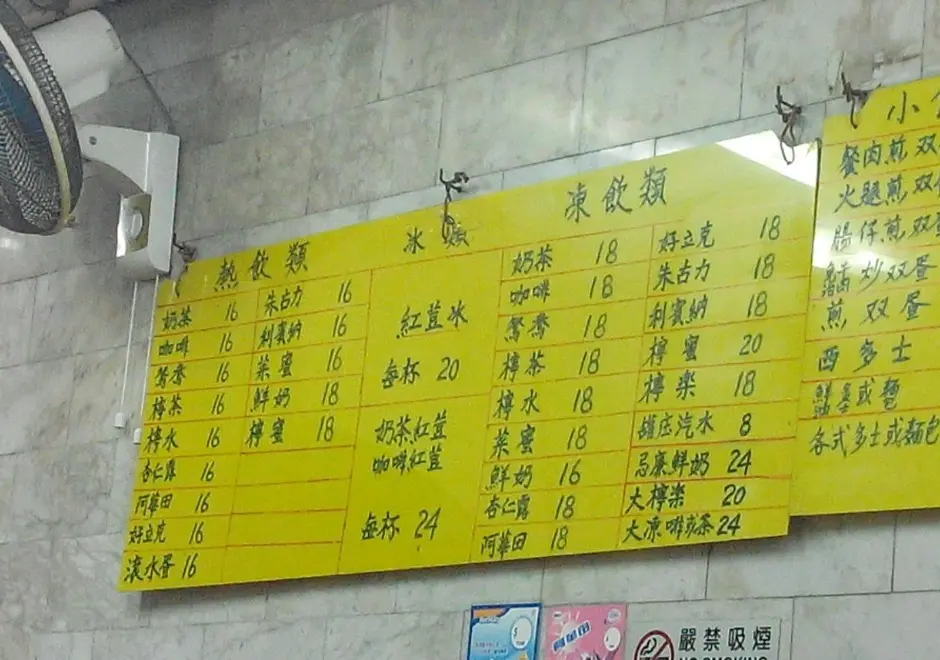 熱飲類
奶茶 16
咖啡 16
鴛鴦 16
檸茶 16
檸水 16
杏仁露 16
阿華田 16
好立克 16
滾水蛋 16
朱古力 16
利賓納 16
菜蜜 16
鮮奶 18
檸蜜 18
冰類
紅荳冰
每杯 20
奶茶紅荳
咖啡紅荳
每杯 24
凍飲類
奶茶 18
咖啡 18
鴛鴦 18
檸茶 18
檸水 18
菜蜜 18
鮮奶 16
杏仁露 18
阿華田 18
好立克 18
朱古力 18
利賓納 18
檸蜜 20
檸樂 18
罐庄汽水 8
忌廉鮮奶 24
大檸樂 20
大凍啡或茶 24
小
餐肉煎双
火腿煎双
腸仔煎双
炒双蛋
煎双蛋
西多士
或
各式多士或麵包
嚴禁吸煙
NO SMOKING